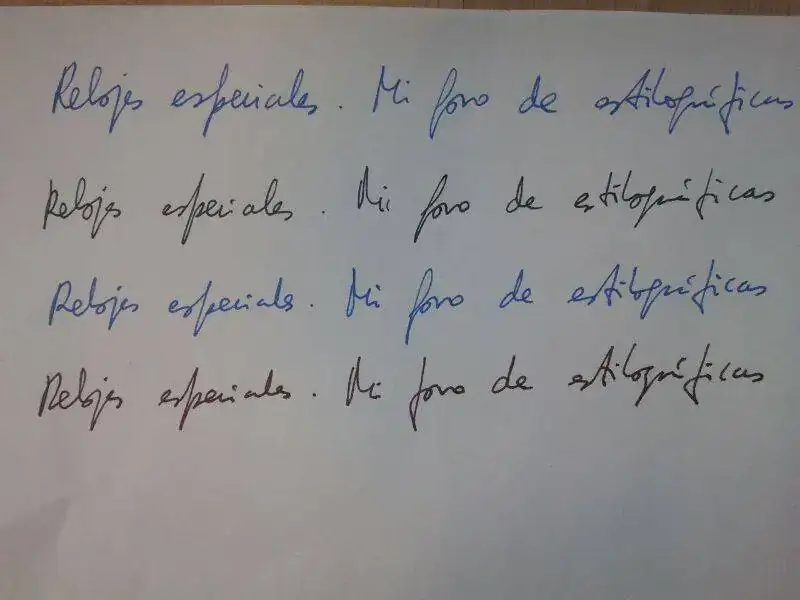 Relojes especiales. Mi foro de estilográficas
Relojes especiales. Mi foro de estilográficas
Relojes especiales. Mi foro de estilográficas
Relojes especiales. Mi foro de estilográficas